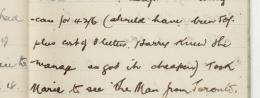 had -can for 42/6 (should have been 50/-
plus cost of shutter. Harry knew the
to manag so got it cheaper) Took
Marie to see "The Man from Toronto.